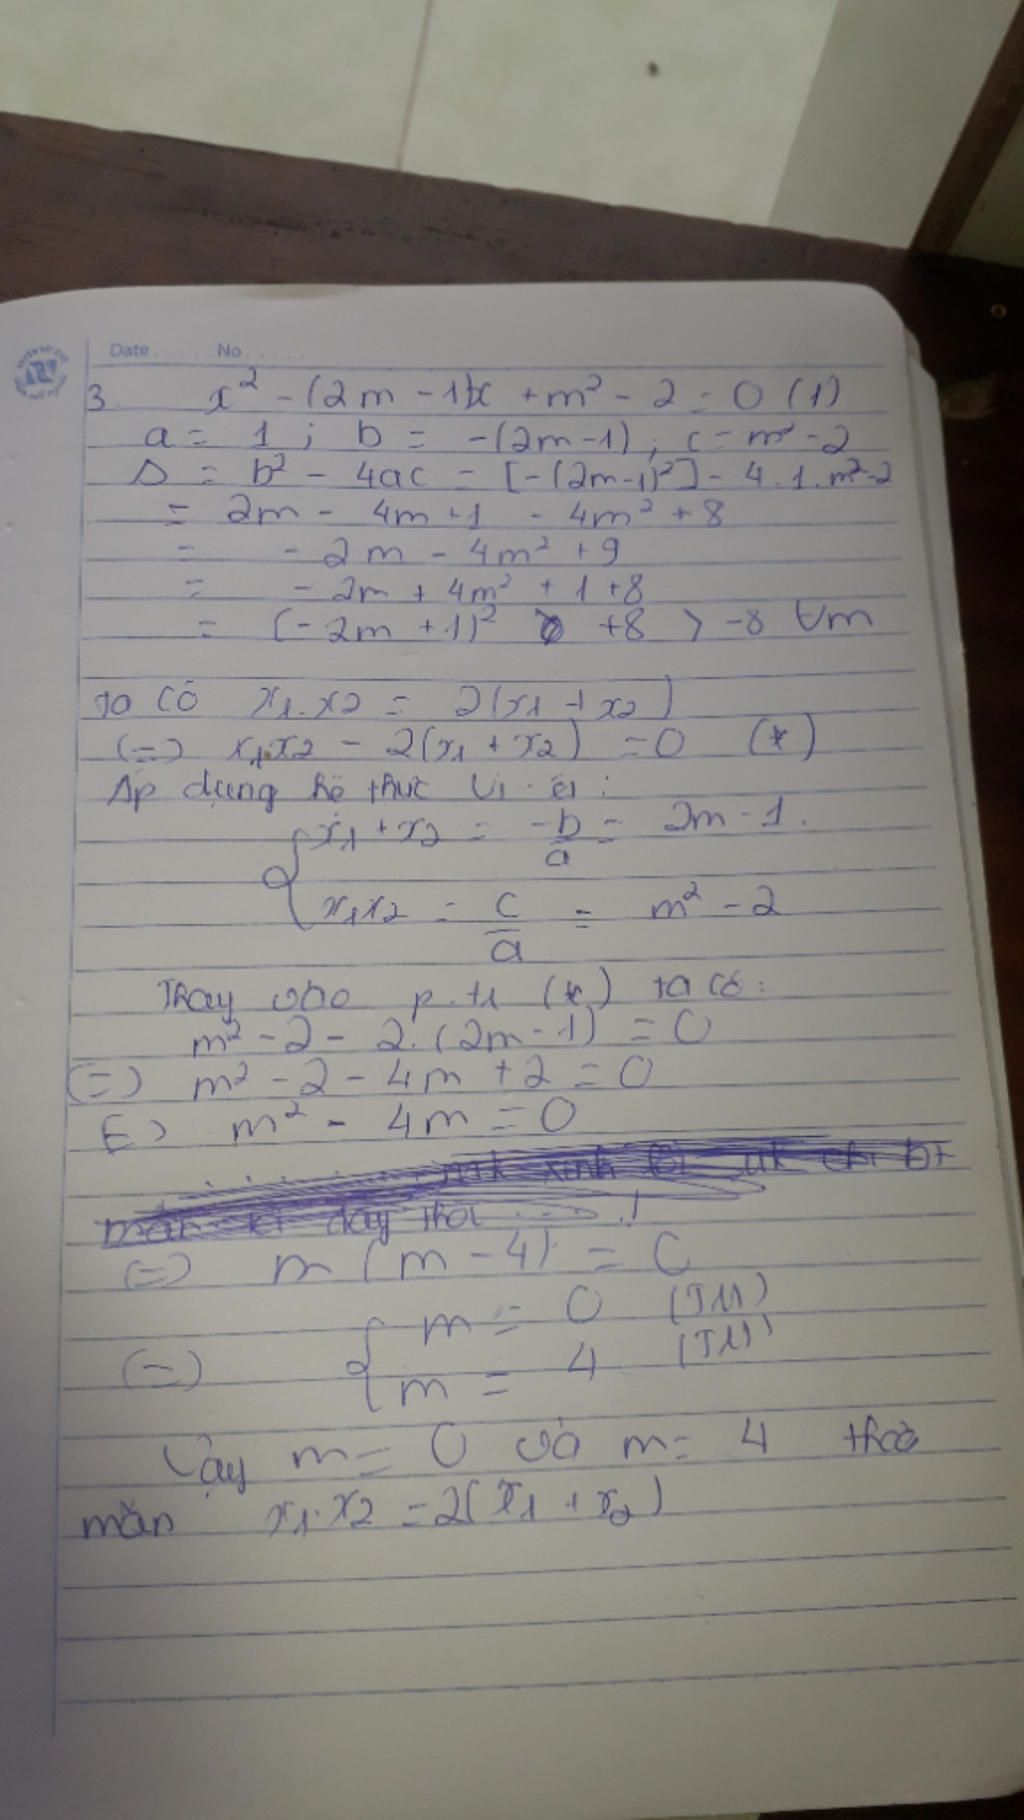 Date ..... No .....
3. x² - (2m - 1)x + m² - 2 = 0 (1)
a = 1 ; b = -(2m-1) ; c = m² - 2
Δ = b² - 4ac = [-(2m-1)²] - 4.1.m²-2
= 2m - 4m + 1 - 4m² + 8
= - 2m - 4m² + 9
= - 2m + 4m² + 1 + 8
= (-2m + 1)² + 8 > -8 ∀m
ta có x₁.x₂ = 2(x₁ + x₂)
(=) x₁x₂ - 2(x₁ + x₂) = 0 (*)
Áp dụng hệ thức Vi-ét :
x₁ + x₂ = -b/a = 2m - 1.
x₁x₂ = c/a = m² - 2
Thay vào p.tr (*) ta có :
m² - 2 - 2.(2m - 1) = 0
(=) m² - 2 - 4m + 2 = 0
(=) m² - 4m = 0
đây thôi ..... !
(=) m (m - 4) = 0
m = 0 (TM)
(=)
m = 4 (TM)
Vậy m = 0 và m = 4 thoả
mãn x₁.x₂ = 2(x₁ + x₂)